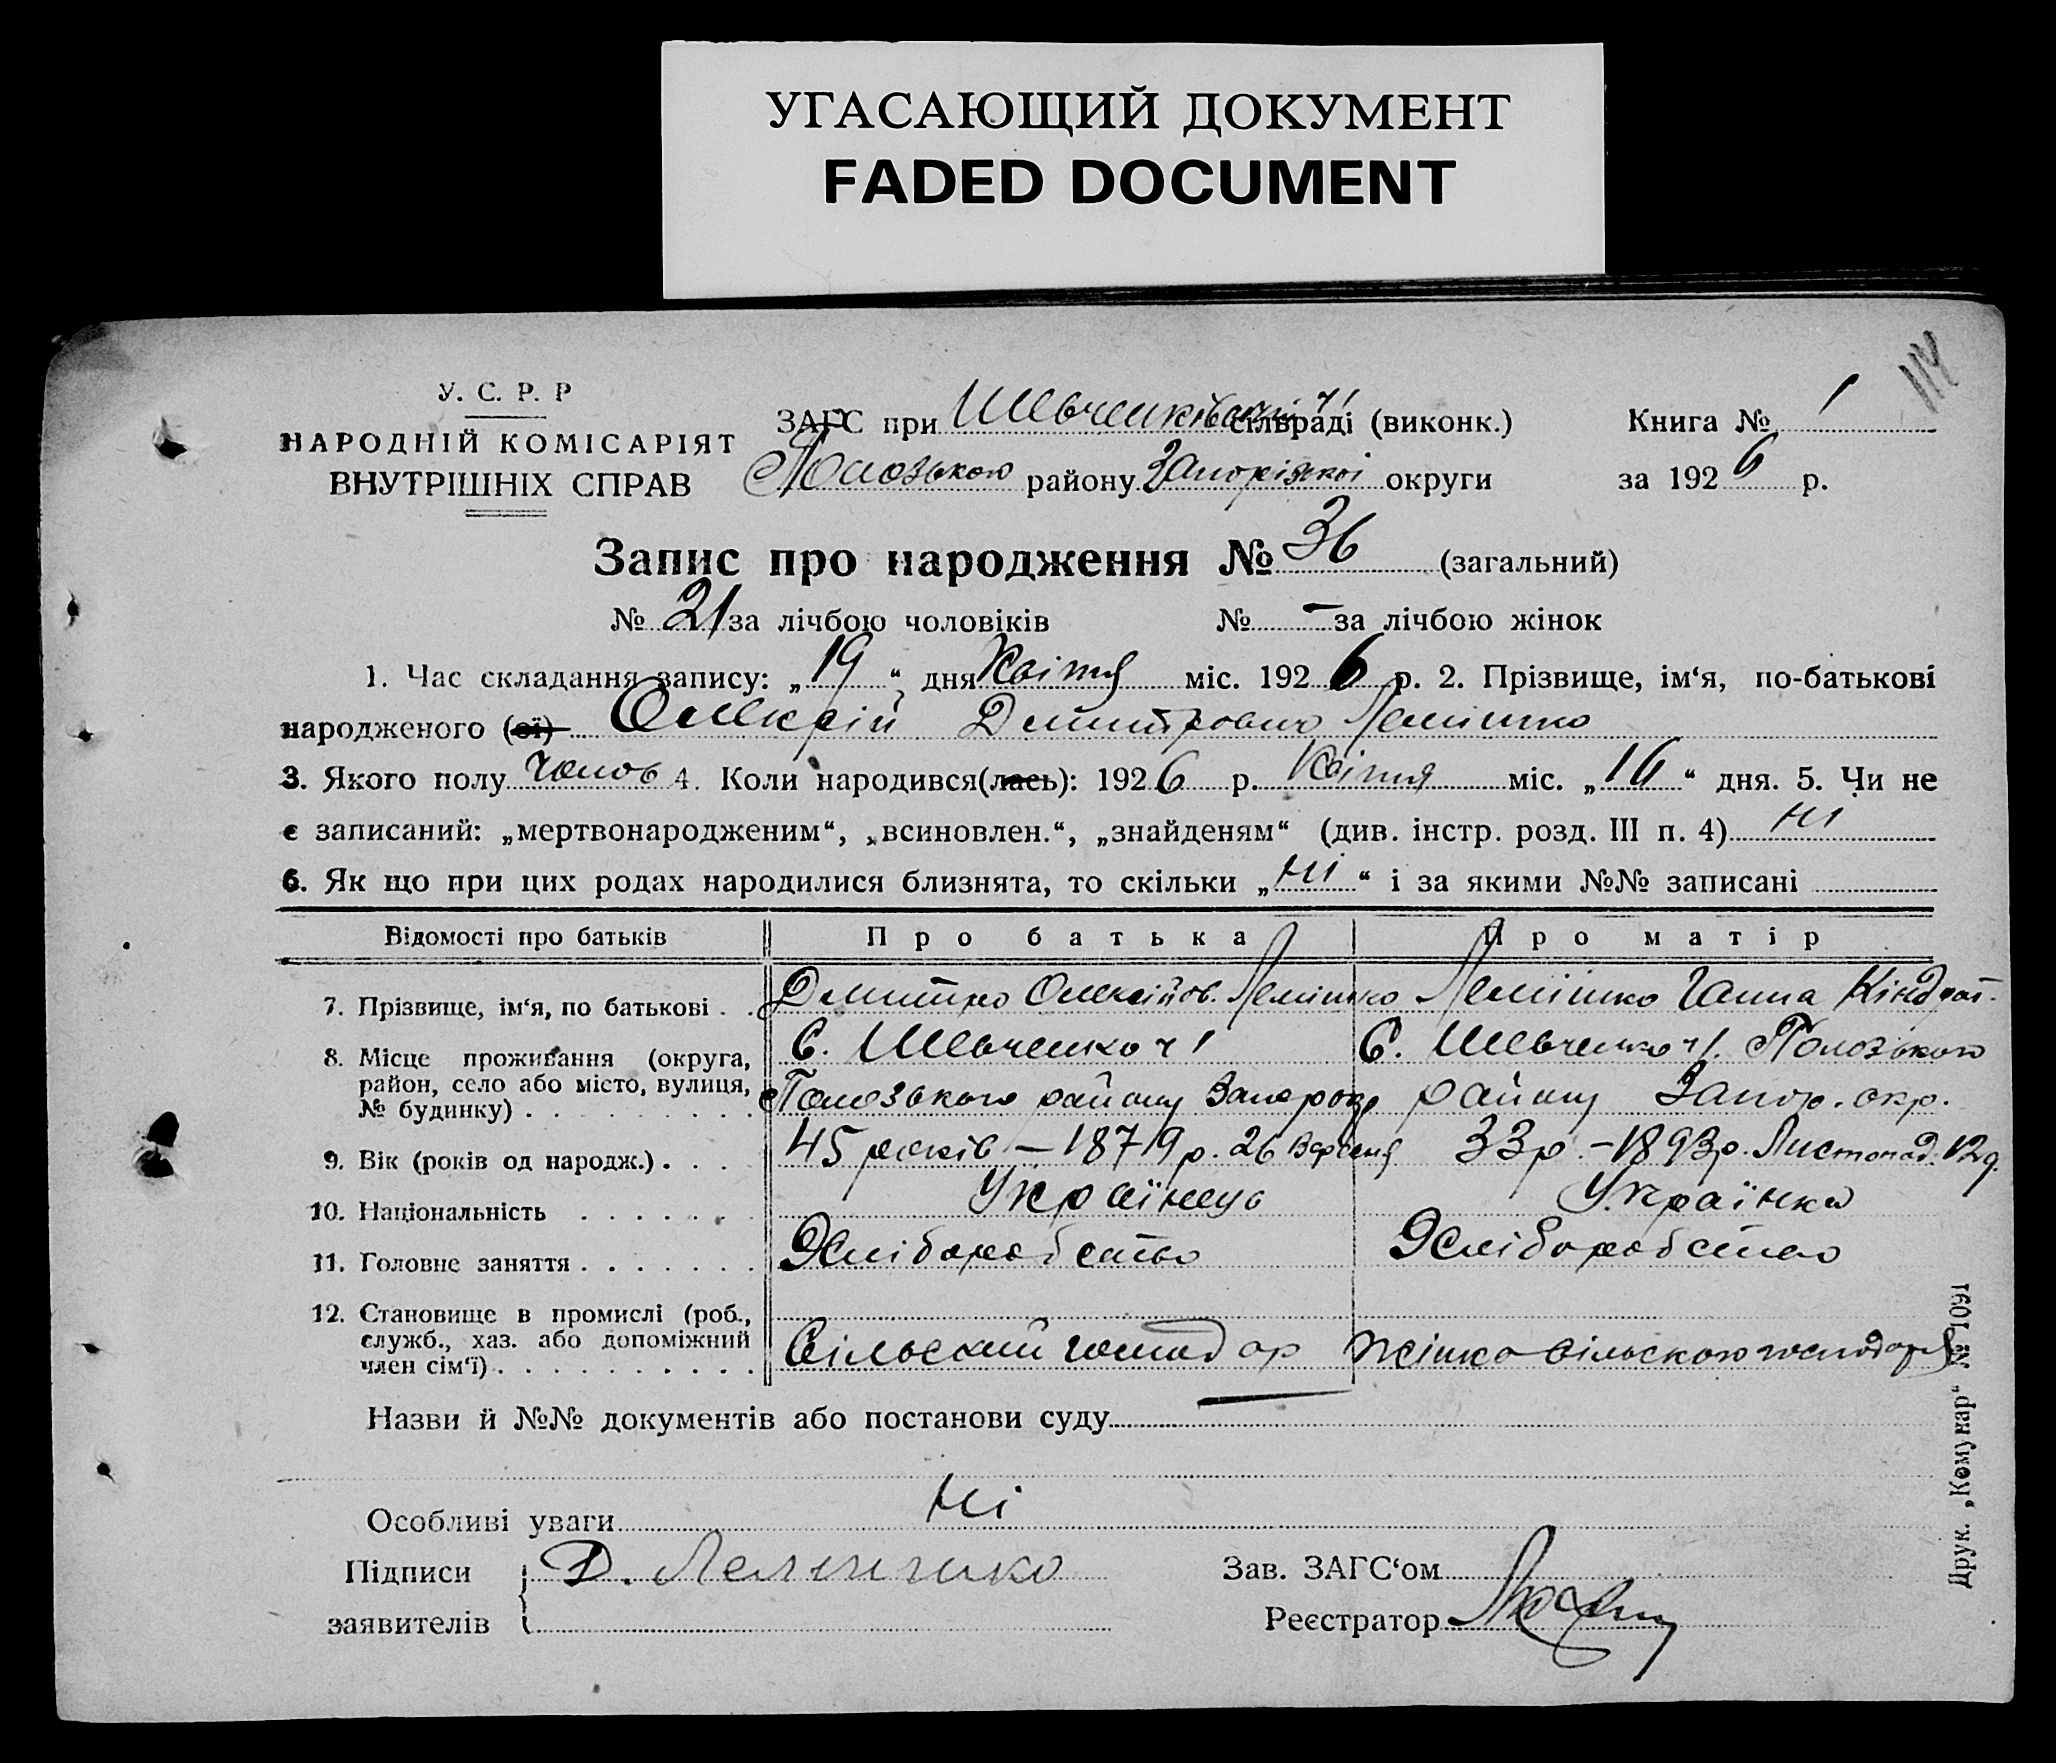 УГАСАЮЩИЙ ДОКУМЕНТ
FADED DOCUMENT
114
У. С. Р. Р
НАРОДНІЙ КОМІСАРІЯТ
ВНУТРІШНІХ СПРАВ
ЗАГС при Шевченківській ч1 сільраді (виконк.)
Полозького району Запорізької округи
Книга № 1
за 1926 р.
Запис про народження № 36 (загальний)
№ 21 за лічбою чоловіків № - за лічбою жінок
1. Час складання запису: „19“ дня Квітня міс. 1926 р. 2. Прізвище, ім‘я, по-батькові
народженого (ої) Олексій Дмитрович Лемішко
3. Якого полу чолов 4. Коли народився(лась): 1926 р. Квітня міс. „16“ дня. 5. Чи не
є записаний: „мертвонародженим“, „всиновлен.“, „знайденям“ (див. інстр. розд. III п. 4) ні
6. Як що при цих родах народилися близнята, то скільки „ні“ і за якими №№ записані
Відомості про батьків Про батька Про матір
7. Прізвище, ім‘я, по батькові . . Дмитро Олексійов. Лемішко Лемішко Ганна Кіндрат.
8. Місце проживання (округа, район, село або місто, вулиця, № будинку) . . . . . . . . .
С. Шевченко ч1 С. Шевченко ч1. Полозького
Полозького району Запорозь району Запор. окр.
9. Вік (років од народж.) . . . 45 років – 1879 р. 26 Вересня 33 р. – 1893 р. Листопад. 12 д.
10. Національність . . . . . . . Українець Українка
11. Головне заняття . . . . . . . Хліборобство Хліборобство
12. Становище в промислі (роб., служб., хаз. або допоміжний член сім‘ї) . . . . . . . . . .
Сільский господар жінка сільского господаря
Назви й №№ документів або постанови суду —
Особливі уваги ні
Підписи заявителів Д. Лемішко
Зав. ЗАГС‘ом
Реєстратор
Друк. „Комунар“ № 1091